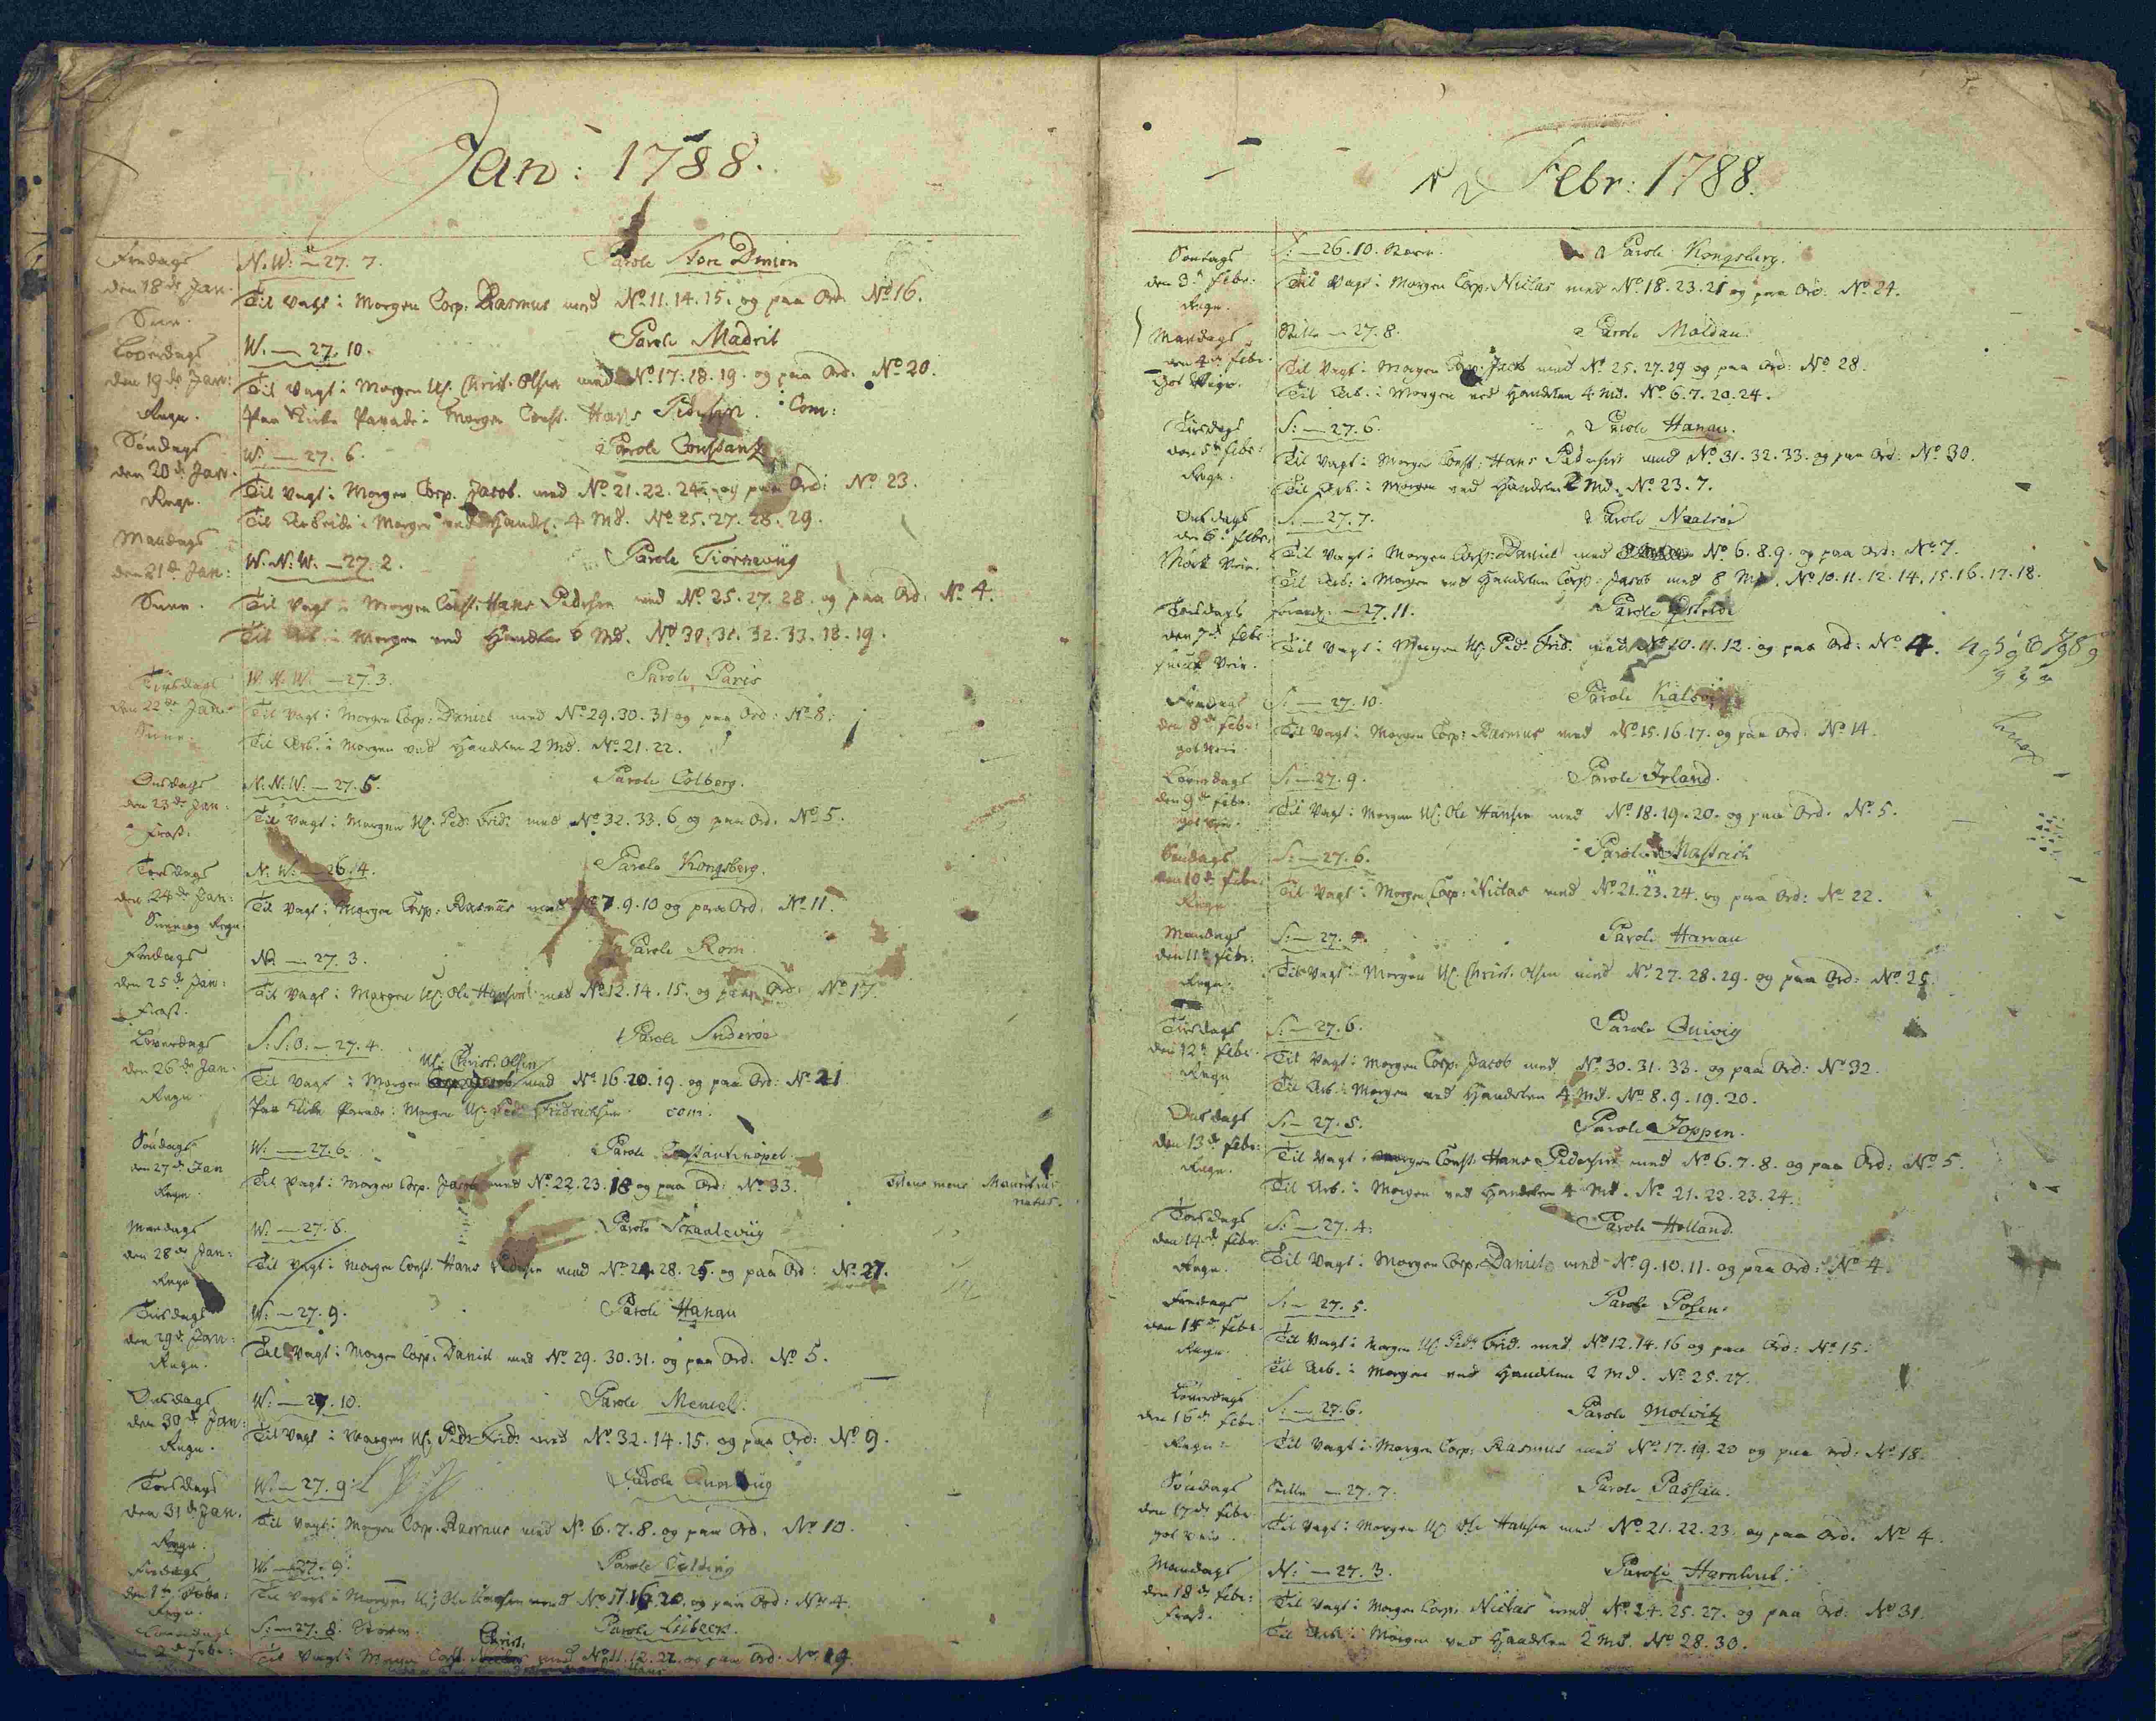 Jan: 1788.
Fredags N.W: — 27. 7. Parole
den 18de Jan. Til Vagt i Morgen Corp: Rasmus med No 11. 14. 15. og paa Ord. No 16.
Snee.
Loverdags W. — 27. 10. Parole Madrit
den 19de Jan: Til Vagt i Morgen Uf. Christ. Olsen med No 17. 18. 19. og paa Ord. No 20.
Regn. Paa Kirke Parade i Morgen Const. Hans Pedersen. Com:
Söndags W. — 27. 6. Parole Constantz
den 20de Jan. Til Vagt i Morgen Corp. Jacob. med No 21. 22. 24. og paa Ord: No 23.
Regn. Til Arbeide i Morgen ved Handl. 4 Md. No 25. 27. 28. 29.
Mandags W.N:W. — 27. 2. Parole
den 21de Jan: Til Vagt i Morgen Const: Hans Pedersen med No 25. 27. 28. og paa Ord. No 4.
Snee. Til Arb. i Morgen ved Handlen 6 Md. No 30. 31. 32. 33. 18. 19.
Tirsdags W.N.W. — 27. 3. Parole Paris
den 22de Jan: Til Vagt i Morgen Corp: Daniel med No 29. 30. 31 og paa Ord: No 8.
Snee. Til Arb. i Morgen ved Handlen 2 Md. No 21. 22.
Onsdags N.N:W. — 27. 5. Parole Colberg.
den 23de Jan: Til Vagt i Morgen Uf. Ped: Frid: med No 32. 33. 6 og paa Ord. No 5.
Frost.
Torsdags N. W. — 26. 4. Parole Kongsberg.
den 24de Jan: Til Vagt i Morgen Corp: Rasmus med No 7. 9. 10 og paa Ord. No 11.
Snee og Regn.
Fredags N. — 27. 3. Parole Rom
den 25de Jan: Til Vagt i Morgen Uf. Ole Hansen med No 12. 14. 15. og paa Ord: No 17.
Frost.
Loverdags S.S:O: — 27. 4. Parole Suderöe
Uf: Christ: Olsen
den 26de Jan. Til Vagt i Morgen med No 16. 20. 19. og paa Ord: No 21
Regn. Paa Kirke Parade i Morgen Uf: Ped: Fridrichsen com.
Söndags W. — 27. 6. Parole Constantinopel.
den 27de Jan Til Vagt i Morgen Corp. Jacob med No 22. 23. 18 og paa Ord: No 33.
Regn.
Mandags W. — 27. 6. Parole
den 28de Jan: Til Vagt i Morgen Const. Hans Pedersen med No 24. 28. 25. og paa Ord: No 27.
Regn
Tirsdags W. — 27. 9. Parole Hanau
den 29de Jan: Til Vagt i Morgen Corp: Daniel med No 29. 30. 31. og paa Ord. No 5.
Regn.
Onsdags W: — 27. 10. Parole Memel.
den 30de Jan: Til Vagt i Morgen Uf: Ped: Frid: med No 32. 14. 15. og paa Ord: No 9.
Regn.
Torsdags W. — 27. 9. Parole
den 31de Jan. Til Vagt i Morgen Corp. Rasmus med No 6. 7. 8. og paa Ord. No 10.
Regn.
Fredags W. — 27. 9. Parole
den 1te Febr: Til Vagt i Morgen Uf: Ole Hansen med No 17. 16. 20. og paa Ord: No 4.
Regn.
Loverdags S: — 27. 8. Storm. Parole Lübeck.
Christ.
den 2de Febr: Til Vagt i Morgen med No 11. 12. 22. og paa Ord. No 19.
Febr: 1788.
Söndags S: — 26. 10. Storm. Parole Kongsberg.
den 3de Febr: Til Vagt i Morgen Corp: Niclas med No 18. 23. 21 og paa Ord: No 24.
Regn.
Mandags Stille — 27. 8. Parole Moldau.
den 4de Febr. Til Vagt i Morgen Corp: Jacob med No 25. 27. 29 og paa Ord: No 28.
Got Veir. Til Arb. i Morgen ved Handelen 4 Md. No 6. 7. 20. 24.
Tirsdags S: — 27. 6. Parole Hanau.
den 5te Febr: Til Vagt i Morgen Const: Hans Pedersen med No 31. 32. 33. og paa Ord: No 30.
Regn. Til Arb. i Morgen ved Handelen 2 Md. No 23. 7.
Onsdags S: — 27. 7. Parole
den 6te Febr. Til Vagt i Morgen Corp: Daniel med No 6. 8. 9. og paa Ord: No 7.
Mörk Veir. Til Arb. i Morgen ved Handelen Corp: Jacob med 8 Md. No 10. 11. 12. 14. 15. 16. 17. 18.
Torsdags — 27. 11. Parole
den 7de Febr. Til Vagt i Morgen Uf: Ped: Frid: med No 10. 11. 12. og paa Ord: No 4.
smuk Veir.
Fredags S: — 27. 10. Parole
den 8de Febr: Til Vagt i Morgen Corp: Rasmus med No 15. 16. 17. og paa Ord: No 14.
got Veir
Loverdags S: — 27. 9. Parole Irland.
den 9de Febr. Til Vagt i Morgen Uf: Ole Hansen med No 18. 19. 20. og paa Ord. No 5.
got Veir.
Söndags S: — 27. 6. Parole Mastrich
den 10de Febr. Til Vagt i Morgen Corp: Niclas med No 21. 23. 24. og paa Ord: No 22.
Regn
Mandags S: — 27. 4. Parole Hanau
den 11te Febr: Til Vagt i Morgen Uf. Christ. Olsen med No 27. 28. 29. og paa Ord: No 25.
Regn.
Tirsdags S: — 27. 6. Parole
den 12te Febr. Til Vagt i Morgen Corp: Jacob med No 30. 31. 33. og paa Ord: No 32.
Regn Til Arb. i Morgen ved Handelen 4 Md. No 8. 9. 19. 20.
Onsdags S: — 27. 5. Parole Joppen.
den 13de Febr: Til Vagt i Morgen Const: Hans Pedersen med No 6. 7. 8. og paa Ord: No 5.
Regn. Til Arb. i Morgen ved Handelen 4 Md. No 21. 22. 23. 24.
Torsdags S: — 27. 4. Parole Holland.
den 14de Febr: Til Vagt i Morgen Corp: Daniel med No 9. 10. 11. og paa Ord: No 4.
Regn.
Fredags S: — 27. 5. Parole Posen.
den 15de Febr. Til Vagt i Morgen Uf: Ped: Frid: med No 12. 14. 16 og paa Ord: No 15.
Regn. Til Arb. i Morgen ved Handelen 2 Md. No 25. 27.
Loverdags S: — 27. 6. Parole Molvitz
den 16de Febr: Til Vagt i Morgen Corp: Rasmus med No 17. 19. 20 og paa Ord: No 18.
Regn.
Söndags Stille — 27. 7. Parole Passau.
den 17de Febr. Til Vagt i Morgen Uf: Ole Hansen med No 21. 22. 23 og paa Ord. No 4.
got Veir.
Mandags N: — 27. 3. Parole
den 18de Febr: Til Vagt i Morgen Corp: Niclas med No 24. 25. 27. og paa Ord: No 31.
Frost. Til Arb. i Morgen ved Handelen 2 Md. No 28. 30.